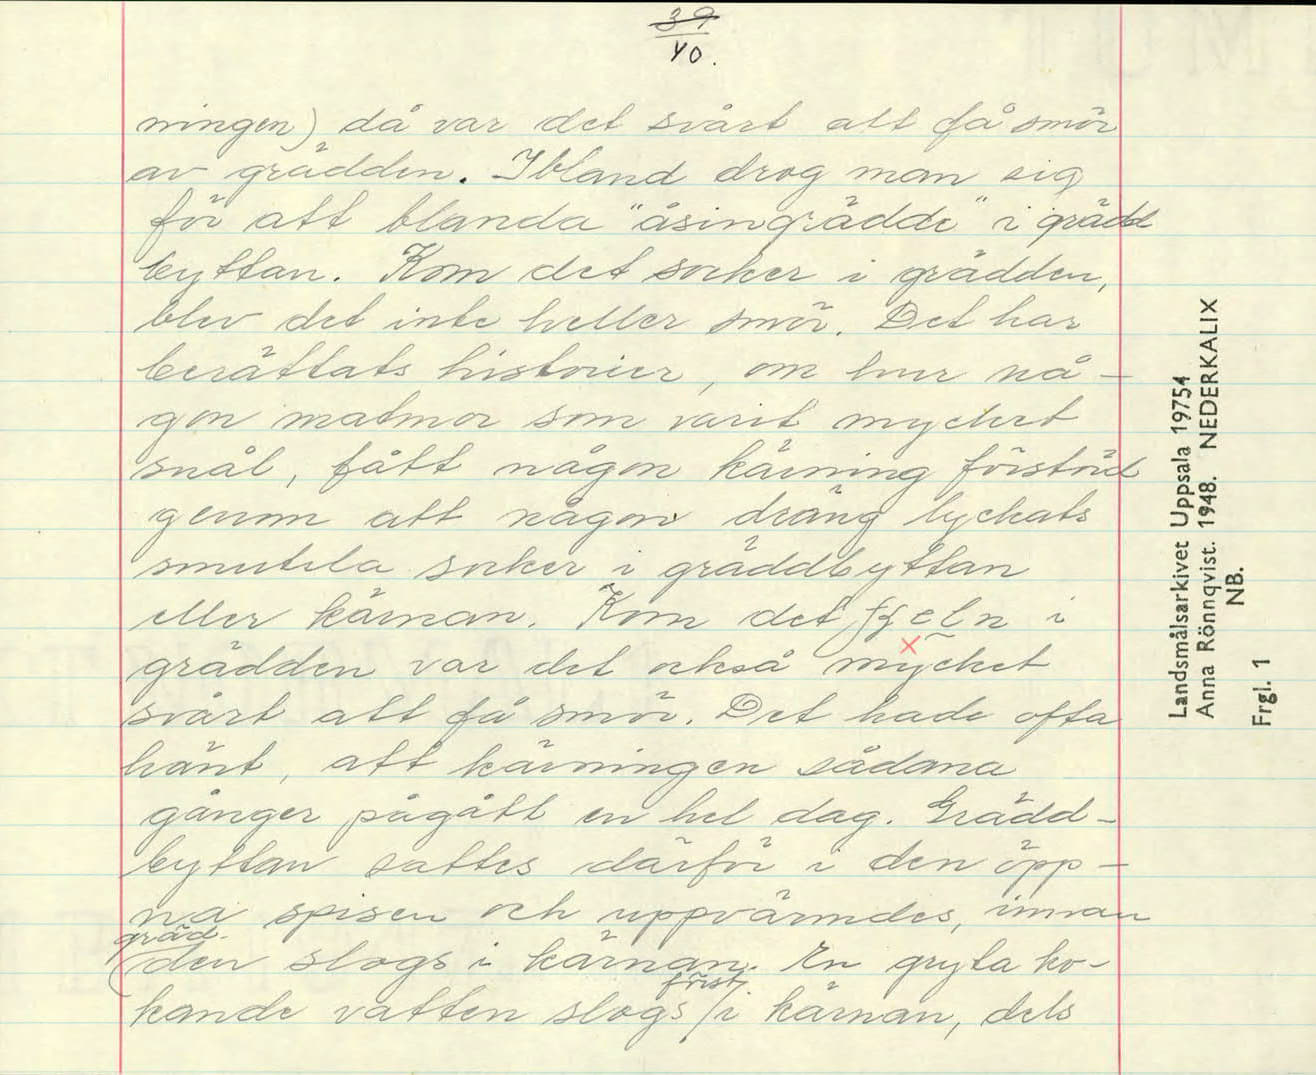 39
40.
ningen) då var det svårt att få smör
av grädden. Ibland drog man sig
för att blanda "åsingrädde" i grädd
byttan. Kom det socker i grädden,
blev det inte heller smör. Det har
berättats historier, om hur nå-
gon matmor som varit mycket
snål, fått någon kärning förstörd
genom att någon dräng lyckats
smutsla socker i gräddbyttan
eller kärnan. Kom det i
grädden var det också mycket
svårt att få smör. Det hade ofta
hänt, att kärningen sådana
gånger pågått en hel dag. Grädd-
byttan sattes därför i den öpp-
na spisen och uppvärmdes, innan
gräd-
den slogs i kärnan. En gryta ko-
kande vatten slogs först i kärnan, dels
Landsmålsarkivet Uppsala 19754
Anna Rönnqvist. 1948. NEDERKALIX
NB.
Frgl. 1